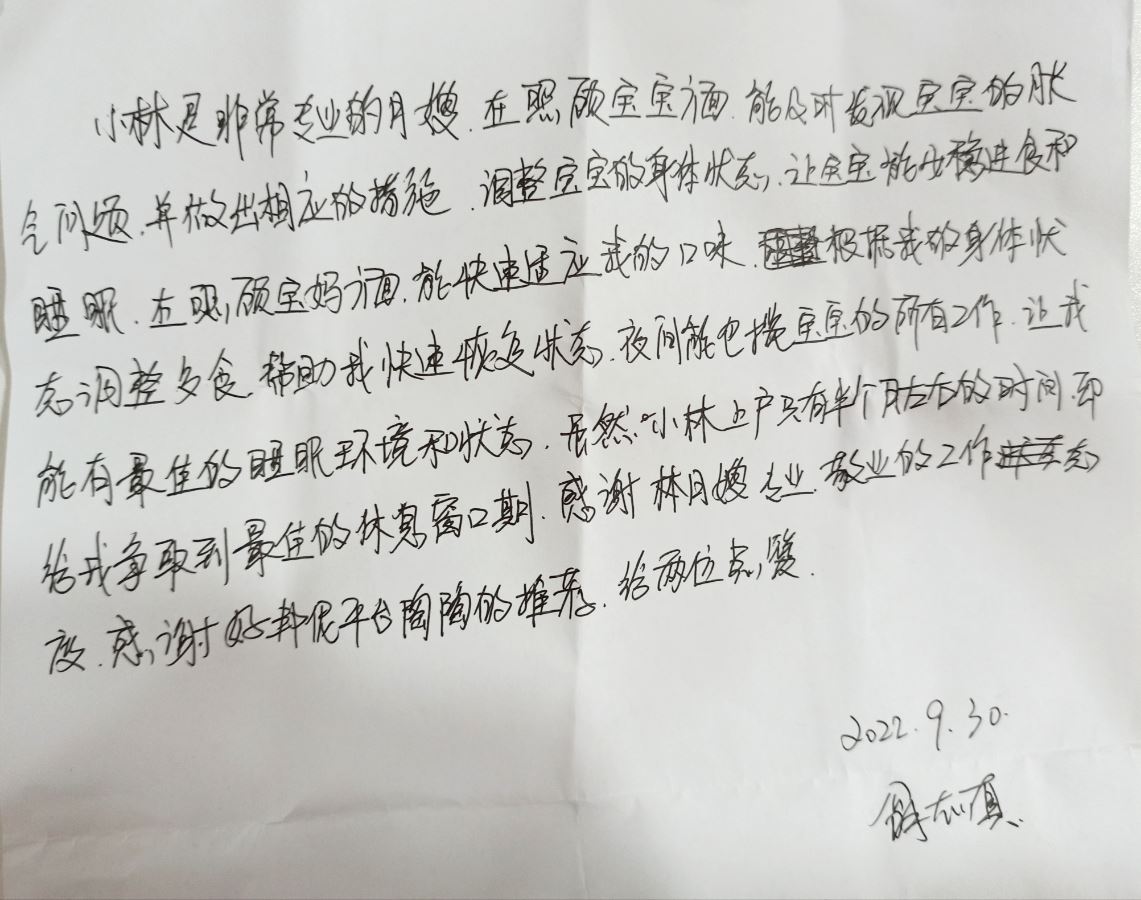 小林是非常专业的月嫂.在照顾宝宝方面.能及时发现宝宝的胀
气问题.并做出相应的措施.调整宝宝的身体状态,让宝宝能安稳进食和
睡眠.在照顾宝妈方面.能快速适应我的口味.根据我的身体状
态调整多食.帮助我快速恢复状态.夜间能包揽宝宝的所有工作.让我
能有最佳的睡眠环境和状态.虽然小林上户只有半个月左右的时间.却
给我争取到最佳的休息窗口期.感谢林月嫂专业.敬业的工作态
度.感谢好邦伲平台陶陶的推荐.给两位点赞.
2022.9.30.